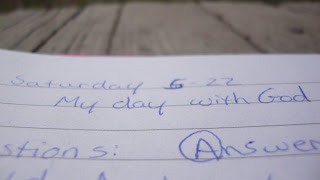 Saturday 5-22
My day with God
stions: Answer